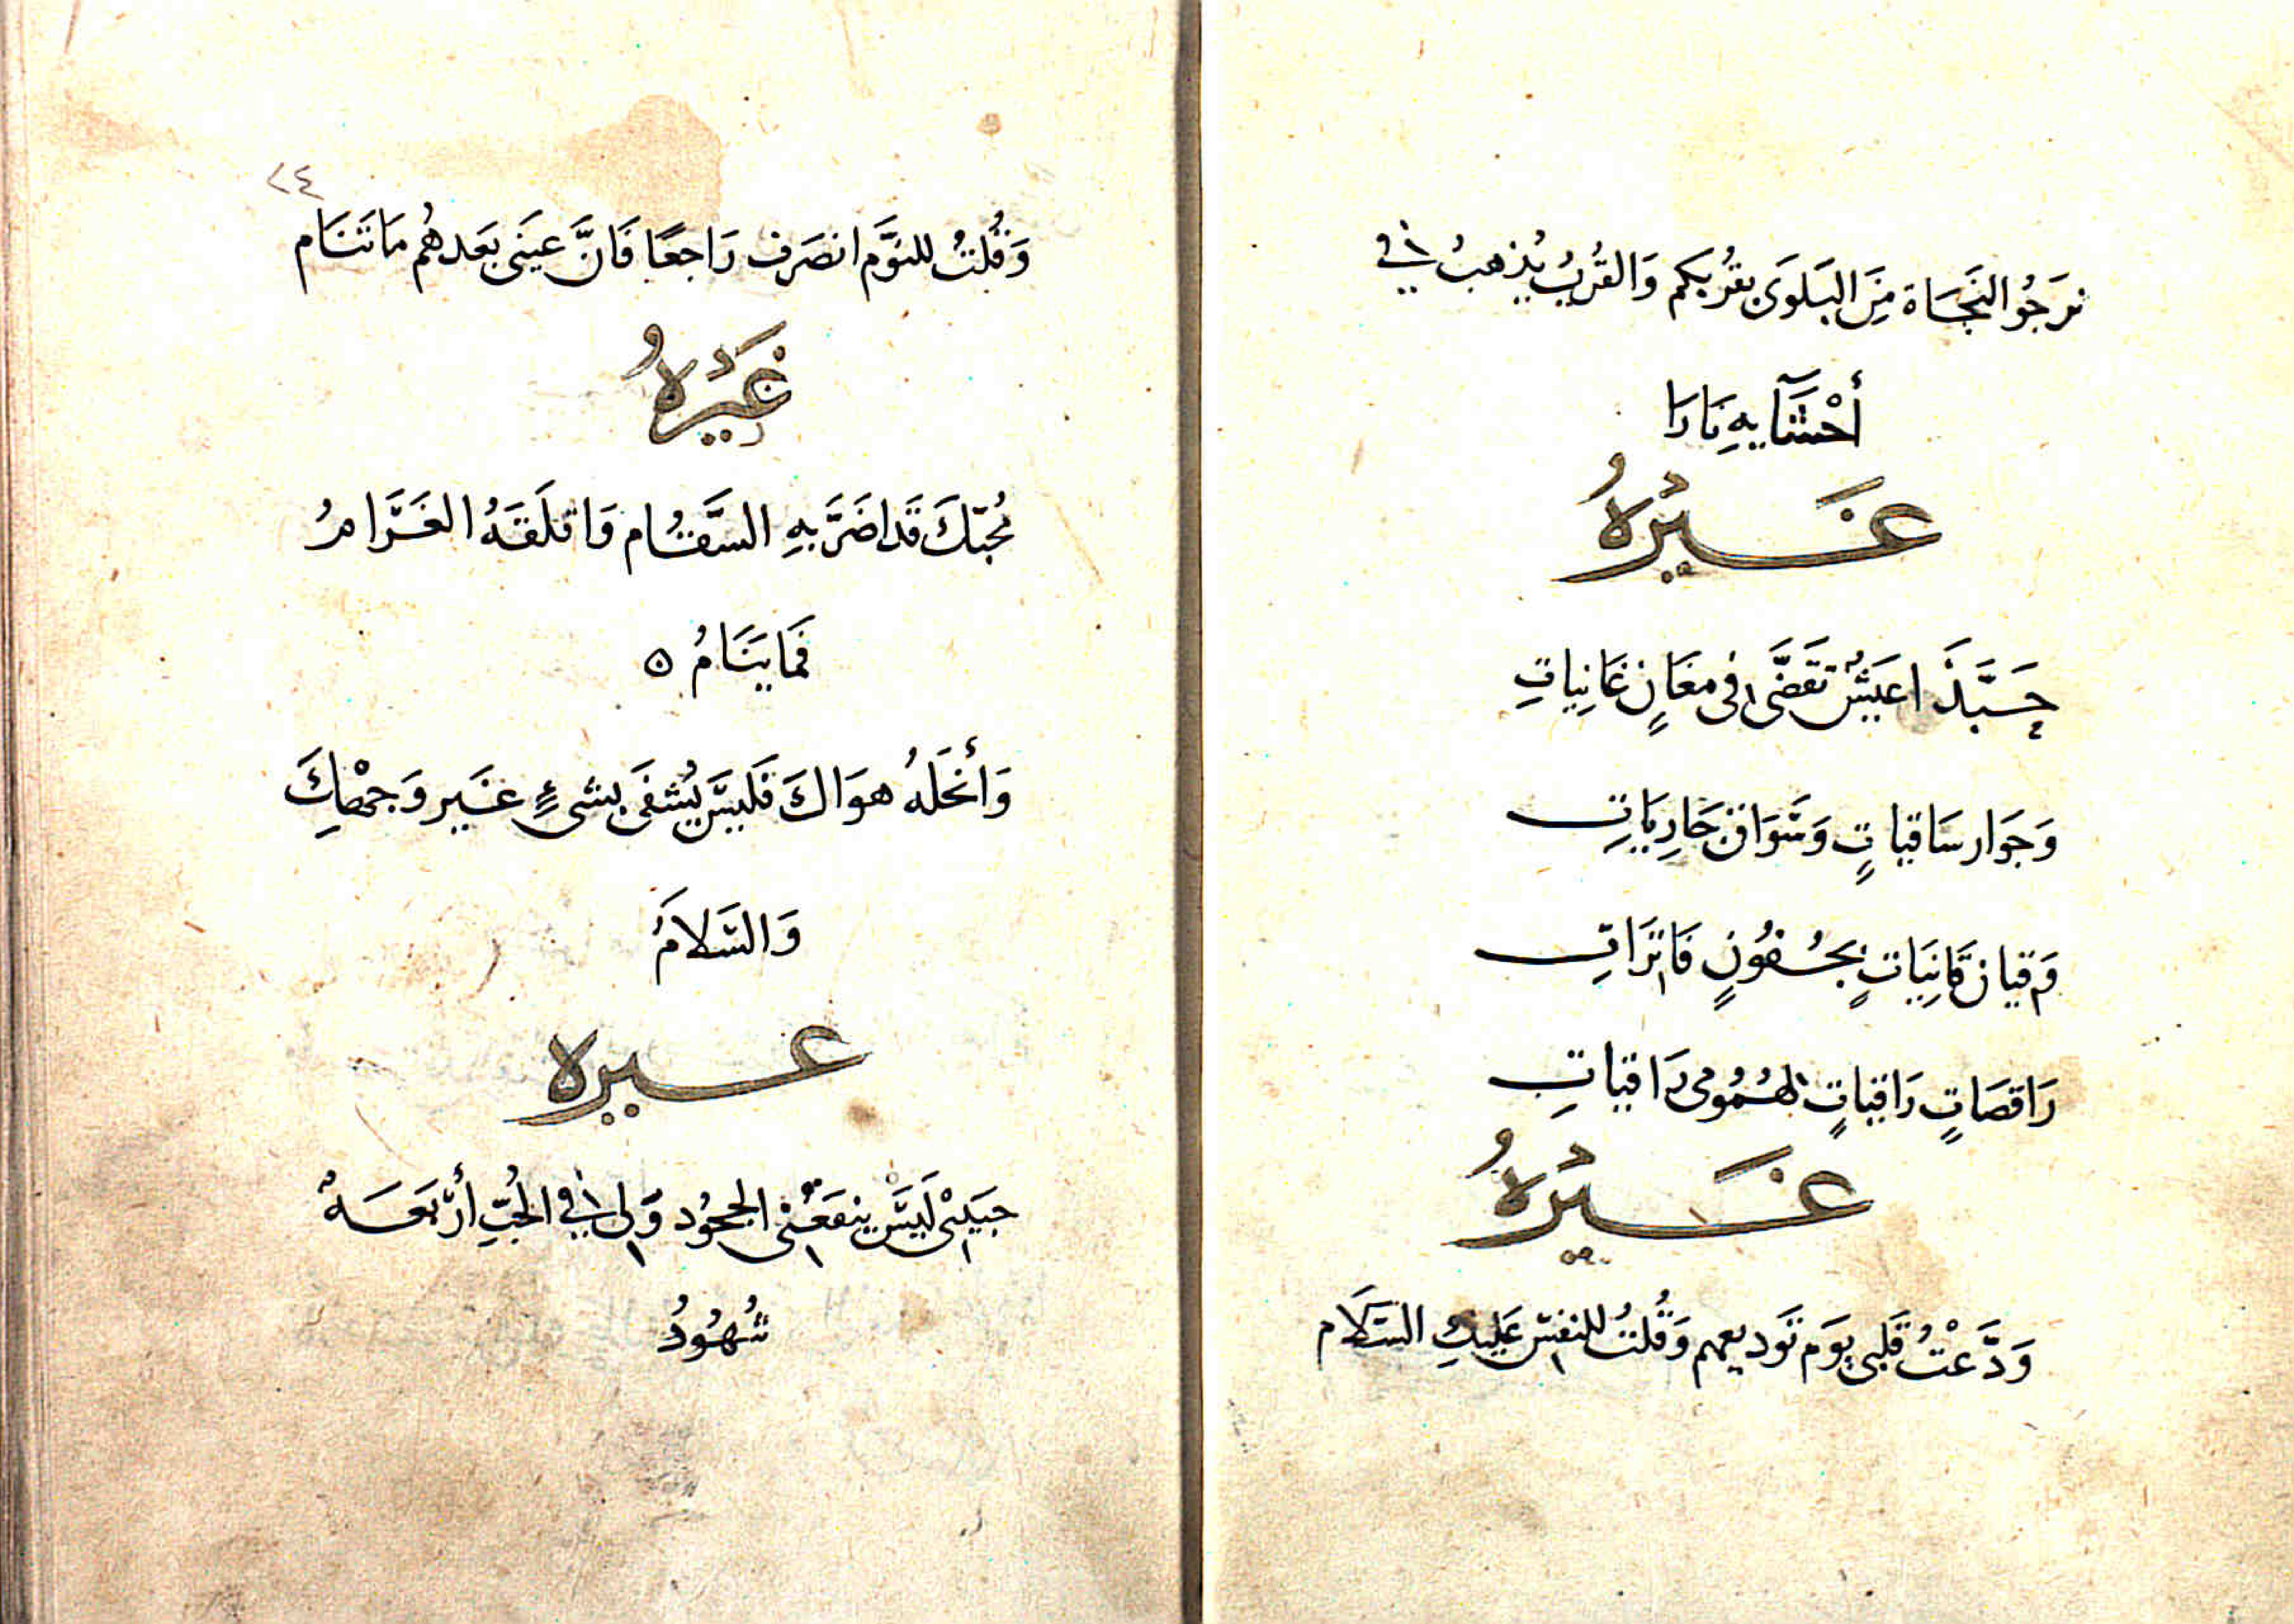 نَرَجُو النَجَاة مِنَ البَلوَى بقُربكم وَالقُربُ يُذهبُ في
أحْشَآيهِ نَارَا
غَيْرُهُ
حَبَّذَا عَيَشٌ تقَضَّى في مغَانٍ غَانِياتِ
وَجَوار سَاقياتٍ وَسَوَاقٍ جَارِيَاتِ
وَقيان قَانِيَاتٍ بجُفُونٍ فَاتَراتِ
رَاقصَاتٍ رَاقيَاتٍ لهُمُومى رَاقيَاتِ
غَيْرُهُ
وَدَّعْتُ قَلبى يوَم تَوديعهم وَقُلتُ للنفسَ عَليكِ السَلَام
٢٤
وَقُلتُ للنوَّم انصَرَف رَاجعًا فَانَّ عيَنى بَعَدهُم مَا تَنَام
غَيْرُهُ
مُحبّكَ قَد اضَرَّ بهِ السَّقَام وَاقلَقَهُ الغَرَامُ
فَمَا يَنَامُ ٥
وَأنحَلَهُ هوَاكَ فَليسَ يُشفَى بشىءٍ غَير وَجهكَ
وَالسَلامُ
غيره
حبَيبْى لَيسَ ينفَعُنى الجحُود وَلى في الحُبِّ أرْبَعَةٌ
شُهُودُ